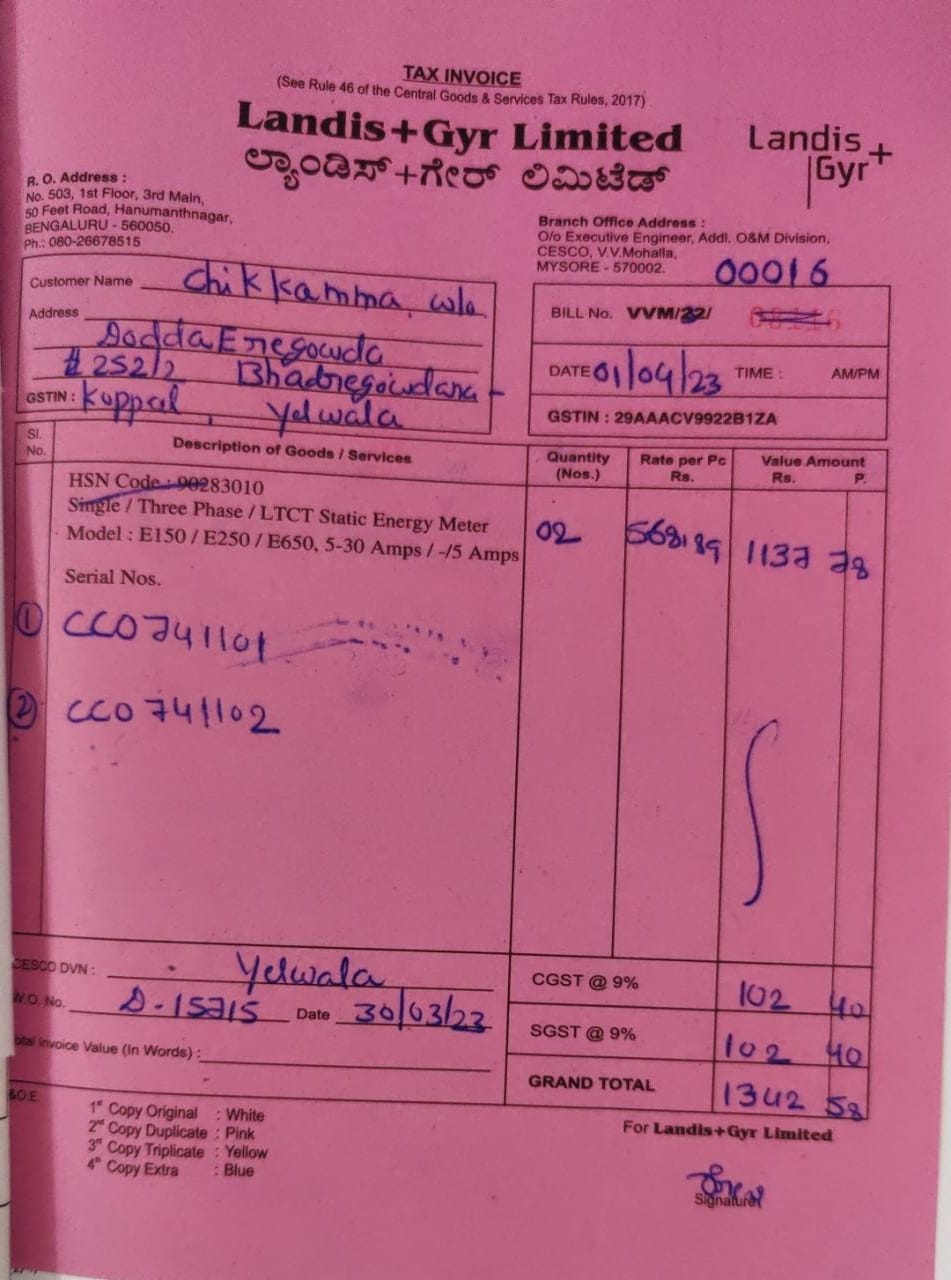 TAX INVOICE
(See Rule 46 of the Central Goods & Services Tax Rules, 2017)
Landis+Gyr Limited
ಲ್ಯಾಂಡಿಸ್+ಗೇರ್ ಲಿಮಿಟೆಡ್
Landis+
Gyr
R. O. Address :
No. 503, 1st Floor, 3rd Main,
50 Feet Road, Hanumanthnagar,
BENGALURU - 560050.
Ph.: 080-26678515
Branch Office Address :
O/o Executive Engineer, Addl. O&M Division,
CESCO, V.V.Mohalla,
MYSORE - 570002.
00016
Customer Name Chikkamma w/o
Address
DoddaEnegowda
# 252/2 Bhadregowdana-
GSTIN : Koppal, Yelwala
BILL No. VVM/22/
DATE 01/04/23 TIME : AM/PM
GSTIN : 29AAACV9922B1ZA
Sl. No. Description of Goods / Services Quantity (Nos.) Rate per Pc Rs. Value Amount Rs. P.
HSN Code : 90283010
Single / Three Phase / LTCT Static Energy Meter
Model : E150 / E250 / E650, 5-30 Amps / -/5 Amps
02 568.89 1137 78
Serial Nos.
1 CC0741101
2 CC0741102
CESCO DVN : Yelwala
W.O. No. D-15715 Date 30/03/23
Total Invoice Value (In Words) :
CGST @ 9% 102 40
SGST @ 9% 102 40
GRAND TOTAL 1342 58
&O.E.
1st Copy Original : White
2nd Copy Duplicate : Pink
3rd Copy Triplicate : Yellow
4th Copy Extra : Blue
For Landis+Gyr Limited
Signature